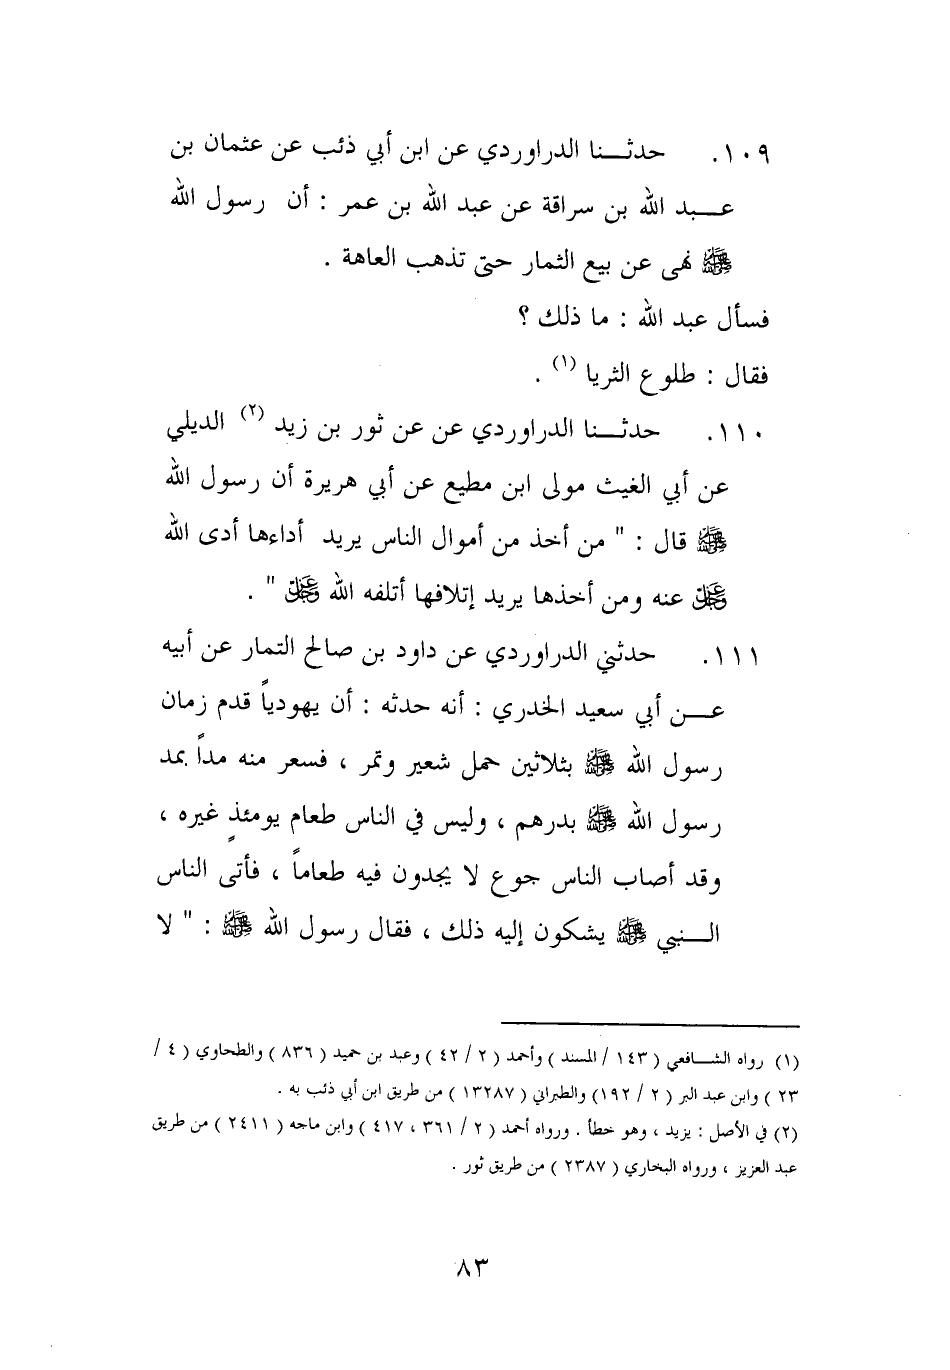 ١٠٩. حدثـــنا الدراوردي عن ابن أبي ذئب عن عثمان بن
عـــبد الله بن سراقة عن عبد الله بن عمر : أن رسول الله
ﷺ نهى عن بيع الثمار حتى تذهب العاهة .
فسأل عبد الله : ما ذلك ؟
فقال : طلوع الثريا (١) .
١١٠. حدثـــنا الدراوردي عن عن ثور بن زيد (٢) الديلي
عن أبي الغيث مولى ابن مطيع عن أبي هريرة أن رسول الله
ﷺ قال : " من أخذ من أموال الناس يريد أداءها أدى الله
عز وجل عنه ومن أخذها يريد إتلافها أتلفه الله عز وجل " .
١١١. حدثني الدراوردي عن داود بن صالح التمار عن أبيه
عـــن أبي سعيد الخدري : أنه حدثه : أن يهودياً قدم زمان
رسول الله ﷺ بثلاثين حمل شعير وتمر ، فسعر منه مداً بمد
رسول الله ﷺ بدرهم ، وليس في الناس طعام يومئذٍ غيره ،
وقد أصاب الناس جوع لا يجدون فيه طعاماً ، فأتى الناس
الـــنبي ﷺ يشكون إليه ذلك ، فقال رسول الله ﷺ : " لا
(١) رواه الشـــافعي ( ١٤٣ / المسند ) وأحمد ( ٢ / ٤٢ ) وعبد بن حميد ( ٨٣٦ ) والطحاوي ( ٤ /
٢٣ ) وابن عبد البر ( ٢ / ١٩٢) والطبراني ( ١٣٢٨٧ ) من طريق ابن أبي ذئب به .
(٢) في الأصل : يزيد ، وهو خطأ . ورواه أحمد ( ٢ / ٣٦١ ، ٤١٧ ) وابن ماجه ( ٢٤١١ ) من طريق
عبد العزيز ، ورواه البخاري ( ٢٣٨٧ ) من طريق ثور .
٨٣